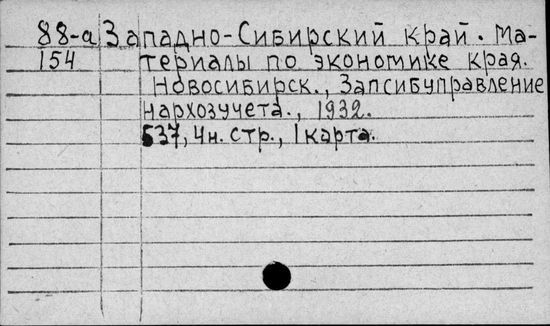 88-а Западно-Сибирский край. Ма-
154 териалы по экономике края.
Новосибирск., Запсибуправление
нархозучета., 1932.
537, 4н. стр., 1 карта.